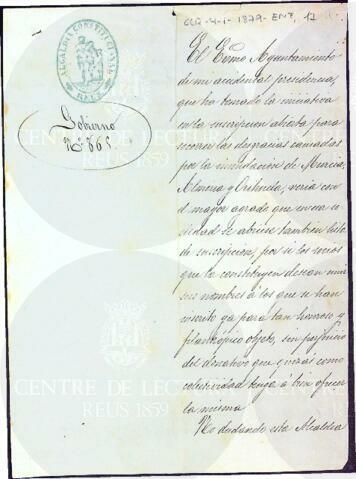 CLR-4-1-1879-ENT, 12
ALCALDIA CONSTITUCIONAL
REUS
Gobierno
Nº 865
El Excmo Ayuntamiento
de mi accidental presidencia,
que ha tomado la iniciativa
en la suscripcion abierta para
socorrer las desgracias causadas
por la inundacion de Murcia,
Almeria y Orihuela, veria con
el mayor agrado que en esa so
ciedad se abriese tambien lista
de suscripcion, por si los socios
que la constituyen desean unir
sus nombres á los que se han
inscrito ya para tan honroso y
filantropico objeto, sin perjuicio
del donativo que quizas como
colectividad tenga á bien ofrecer
la misma.
No dudando esta Alcaldia
CENTRE DE LECTURA
REUS 1859
CENTRE DE LECTURA
REUS 1859